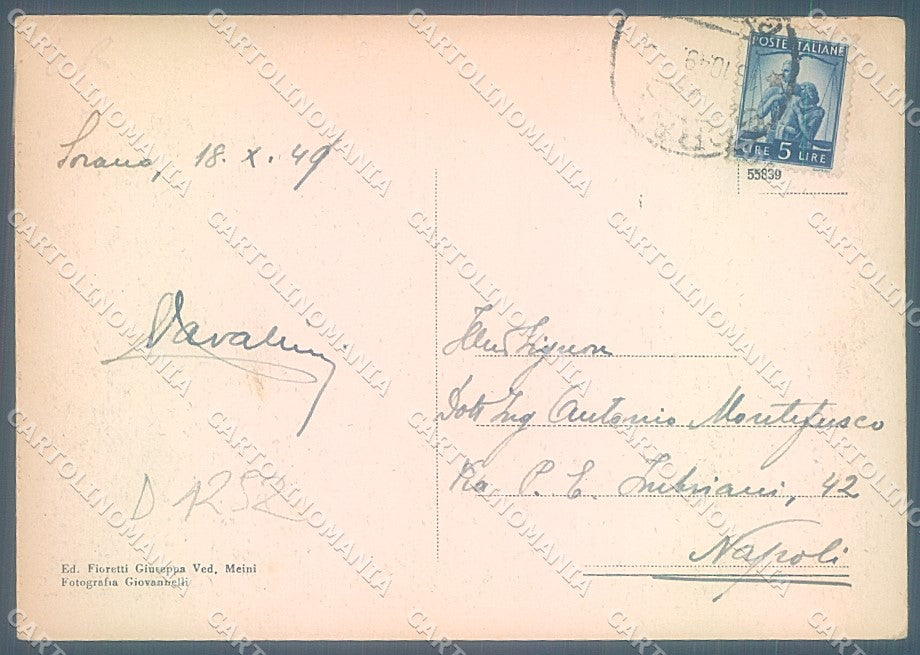 Sorano, 18. X. 49
POSTE ITALIANE
LIRE 5 LIRE
55839
10.49
Ill. Signor
Dott Ing Antonio Montefusco
Via P. E. Imbriani, 42
Napoli
D 1252
Ed. Fioretti Giuseppa Ved. Meini
Fotografia Giovannelli
CARTOLINOMANIA